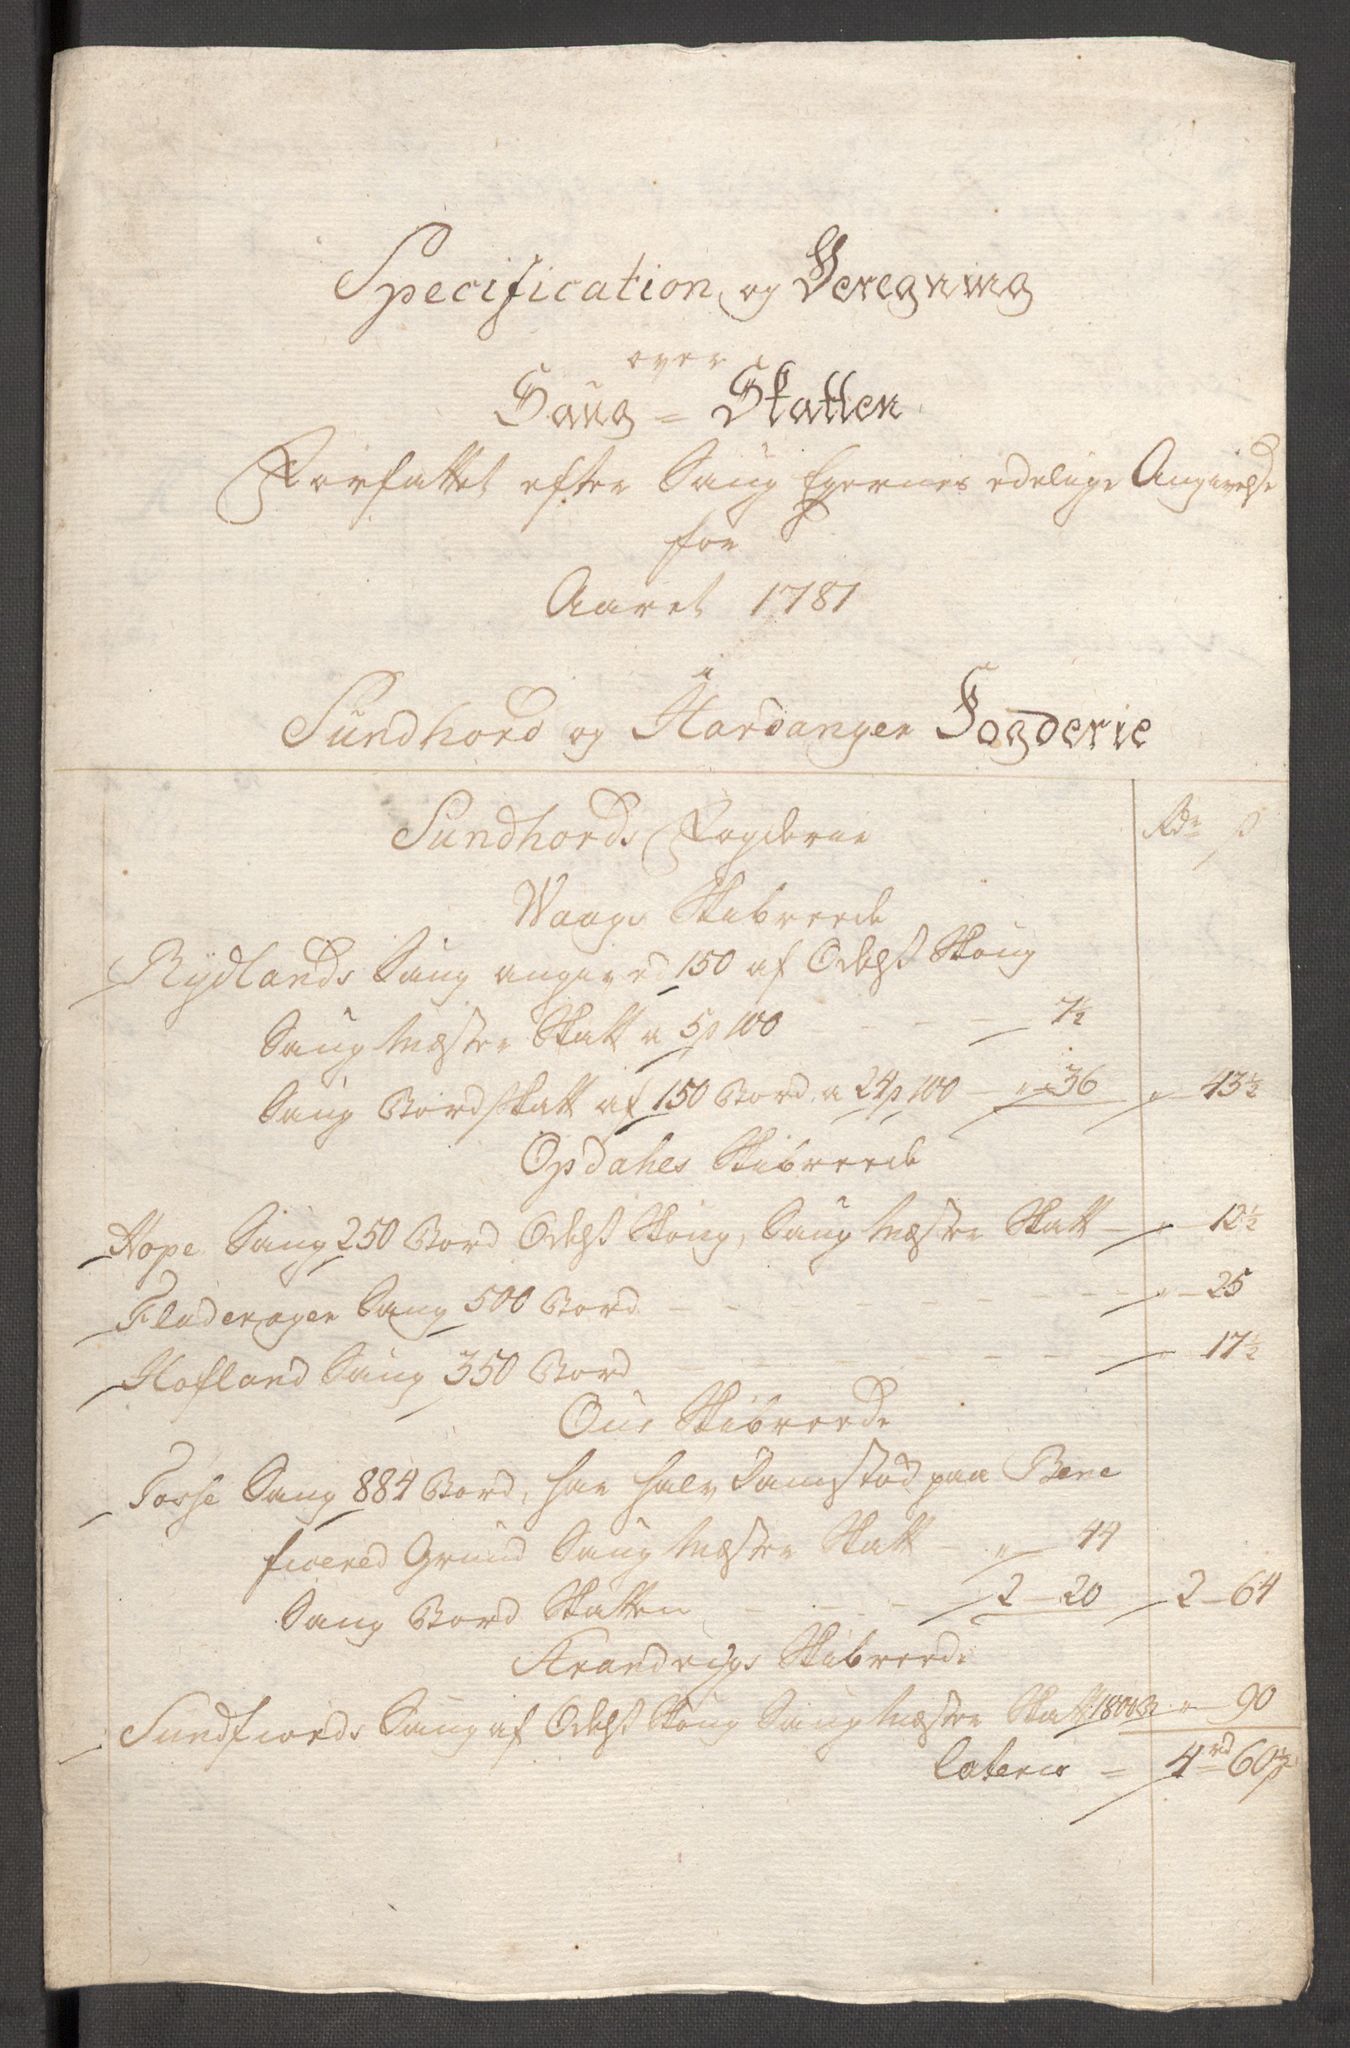 Specification og Beregning
over
Saug = Skatten
Forfattet efter Saug Eyernes edelige Angivelse
for
Aaret 1781
i
Sundhord og Hardanger Fogderie
Sundhords Fogderie Rdr ß
Waags Skibreede
Rydlands Saug angived 150 af Odels Skoug
Saug Mæster Skatt a 5 p 100 - - - 7½
Saug Bord skatt af 150 Bord a 24 p 100 - " - 36 " - 43½
Opdahls Skibreede
Hope Saug 250 Bord Odels Skoug, Saug Mæster Skatt - " - 12½
Fladerager Saug 500 Bord - - - " - 25
Hofland Saug 350 Bord - - - " - 17½
Ous Skibreede
Porse Saug 884 Bord, har halv Damstød paa Bene
ficered Grund Saug Mæster Skatt - " - 44
Saug Bord Skatten - - 2 - 20 2 - 64
Strandvigs Skibreede
Sundfiords Saug af Odels Skoug Saug Mæster Skatt 1800 B " - 90
Lateris = 4 rd 60½ ß